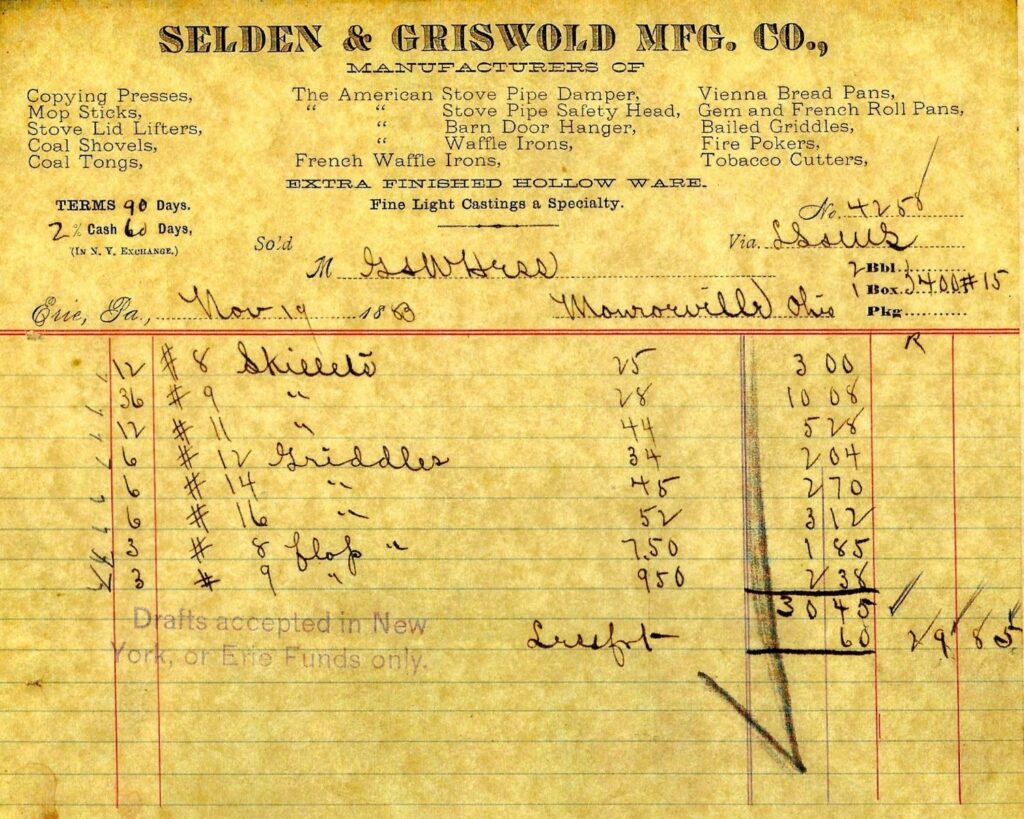 SELDEN & GRISWOLD MFG. CO.,
MANUFACTURERS OF
Copying Presses,
Mop Sticks,
Stove Lid Lifters,
Coal Shovels,
Coal Tongs,
The American Stove Pipe Damper,
“ “ Stove Pipe Safety Head,
“ Barn Door Hanger,
“ Waffle Irons,
French Waffle Irons,
Vienna Bread Pans,
Gem and French Roll Pans,
Bailed Griddles,
Fire Pokers,
Tobacco Cutters,
EXTRA FINISHED HOLLOW WARE.
Fine Light Castings a Specialty.
TERMS 90 Days.
2 % Cash 60 Days,
(IN N. Y. EXCHANGE.)
No. 4258
Via.
So'd
M
2 Bbl.
1 Box. 3400 # 15
Pkg
Erie, Pa., Nov 19 1883
Monroeville Ohio
12 # 8 Skillets 25 3 00
36 # 9 “ 28 10 08
12 # 11 “ 44 5 28
6 # 12 Griddles 34 2 04
6 # 14 “ 45 2 70
6 # 16 “ 52 3 12
3 # 8 flop “ 7.50 1 85
3 # 9 “ 950 2 38
30 45
Less frt 60 29 85
Drafts accepted in New
York, or Erie Funds only.